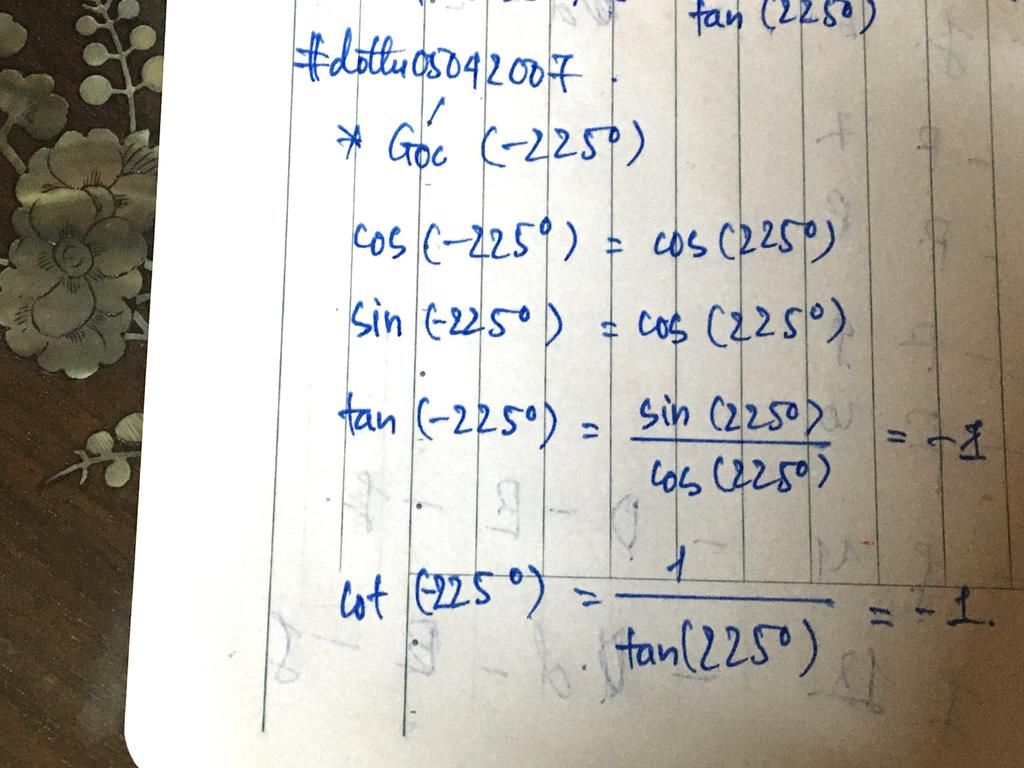 tan (225°)
#dottu05042007.
* Góc (-225°)
cos (-225°) = cos (225°)
sin (-225°) = cos (225°)
tan (-225°) = sin (225°) / cos (225°) = -1
cot (-225°) = 1 / tan (225°) = -1.